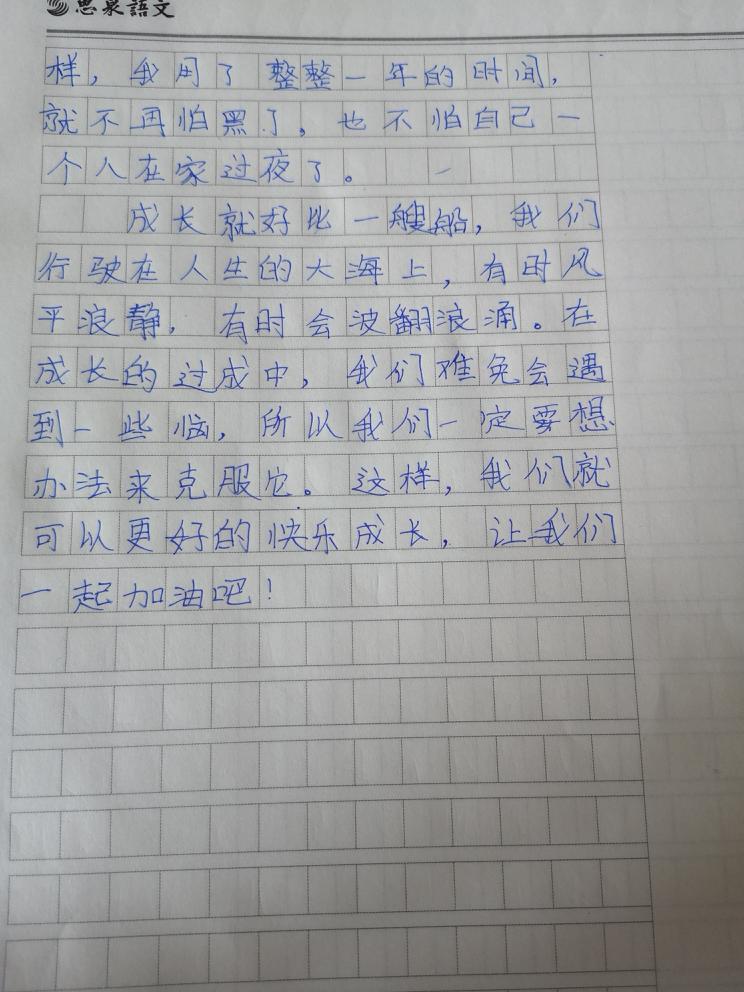 思泉語文
样，我用了整整一年的时间，
就不再怕黑了。也不怕自己一
个人在家过夜了。
成长就好比一艘船，我们
行驶在人生的大海上，有时风
平浪静，有时会波翻浪涌。在
成长的过成中，我们难免会遇
到一些恼，所以我们一定要想
办法来克服它。这样，我们就
可以更好的快乐成长，让我们
一起加油吧！